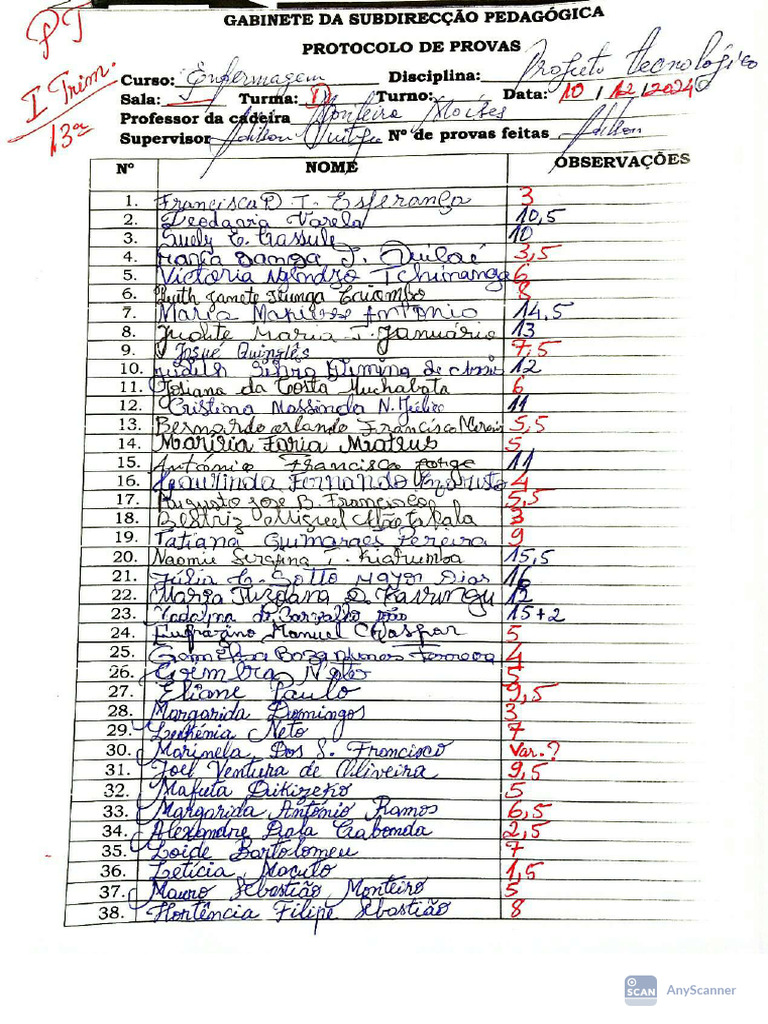 PT
I Trim.
13ª
GABINETE DA SUBDIRECÇÃO PEDAGÓGICA
PROTOCOLO DE PROVAS
Curso: Enfermagem Disciplina: Projeto tecnológico
Sala: Turma: D Turno: Data: 10 / 12 /2024
Professor da cadeira Monteiro Moisés
Supervisor Adilson Nº de provas feitas Adilson
Nº NOME OBSERVAÇÕES
1. Francisca D. T. Esperança 3
2. Varela 10,5
3. Suely E. Cassule 10
4. Maria Sanga J. 3,5
5. Victoria Ngindzo Tchinanga 6
6. Janete 8
7. Maria António 14,5
8. Maria T. Januário 13
9. Josué 7,5
10. Judith 12
11. Josiana da Costa Muchabata 6
12. Cristina Massinda N. Júlio 11
13. Bernardo orlando Francisco 5,5
14. Faria Mateus 5
15. António Francisco Jorge 11
16. Laurinda Fernando 4
17. Augusto José B. Francisco 5,5
18. Beatriz Miguel 3
19. Tatiana Guimarães Pereira 9
20. Naomie Serafina T. Kiatumba 15,5
21. Júlia C. Sotto Mayor Dias 16
22. Maria D. 12
23. de Carvalho João 15+2
24. Eufrazino Manuel Gaspar 5
25. 4
26. Coimbra Neto 5
27. Eliane Paulo 9,5
28. Margarida Domingos 3
29. Neto 7
30. Marinela Dos S. Francisco Var.?
31. Joel Ventura de Oliveira 9,5
32. Mafuta Dikizeko 5
33. Margarida António Ramos 6,5
34. Alexandre Cabonda 2,5
35. Loide Bartolomeu 7
36. Letícia Macuto 1,5
37. Mauro Sebastião Monteiro 5
38. Hortência Filipe Sebastião 8
SCAN AnyScanner